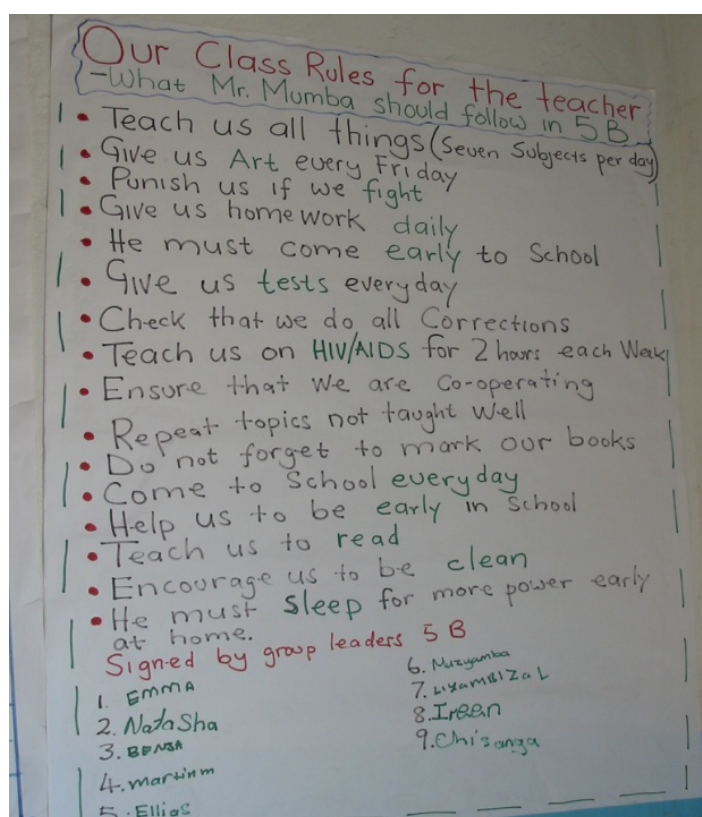 Our Class Rules for the teacher
-What Mr. Mumba should follow in 5 B
• Teach us all things (Seven Subjects per day)
• Give us Art every Friday
• Punish us if we fight
• Give us homework daily
• He must come early to School
• Give us tests everyday
• Check that we do all Corrections
• Teach us on HIV/AIDS for 2 hours each Weak
• Ensure that we are Co-operating
• Repeat topics not taught well
• Do not forget to mark our books
• Come to School everyday
• Help us to be early in School
• Teach us to read
• Encourage us to be clean
• He must Sleep for more power early
at home.
Signed by group leaders 5 B
1. EMMA
2. NataSha
3. BENSA
4. martin m
5. Ellias
6. Muzyamba
7. LIYAMBIZAL
8. Ireen
9. Chisanga